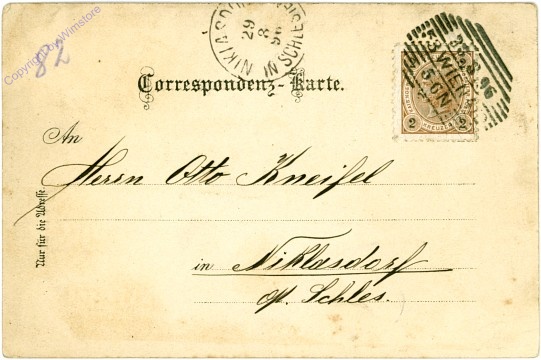 Copyright by Wimstore
82
NIKLASDORF IN SCHLESIEN
29
8
96
Correspondenz-Karte.
WIEN
28.8.96
2 KREUZER 2
An
Herrn Otto Kneifel
Nur für die Adresse
in Niklasdorf
öst. Schles.